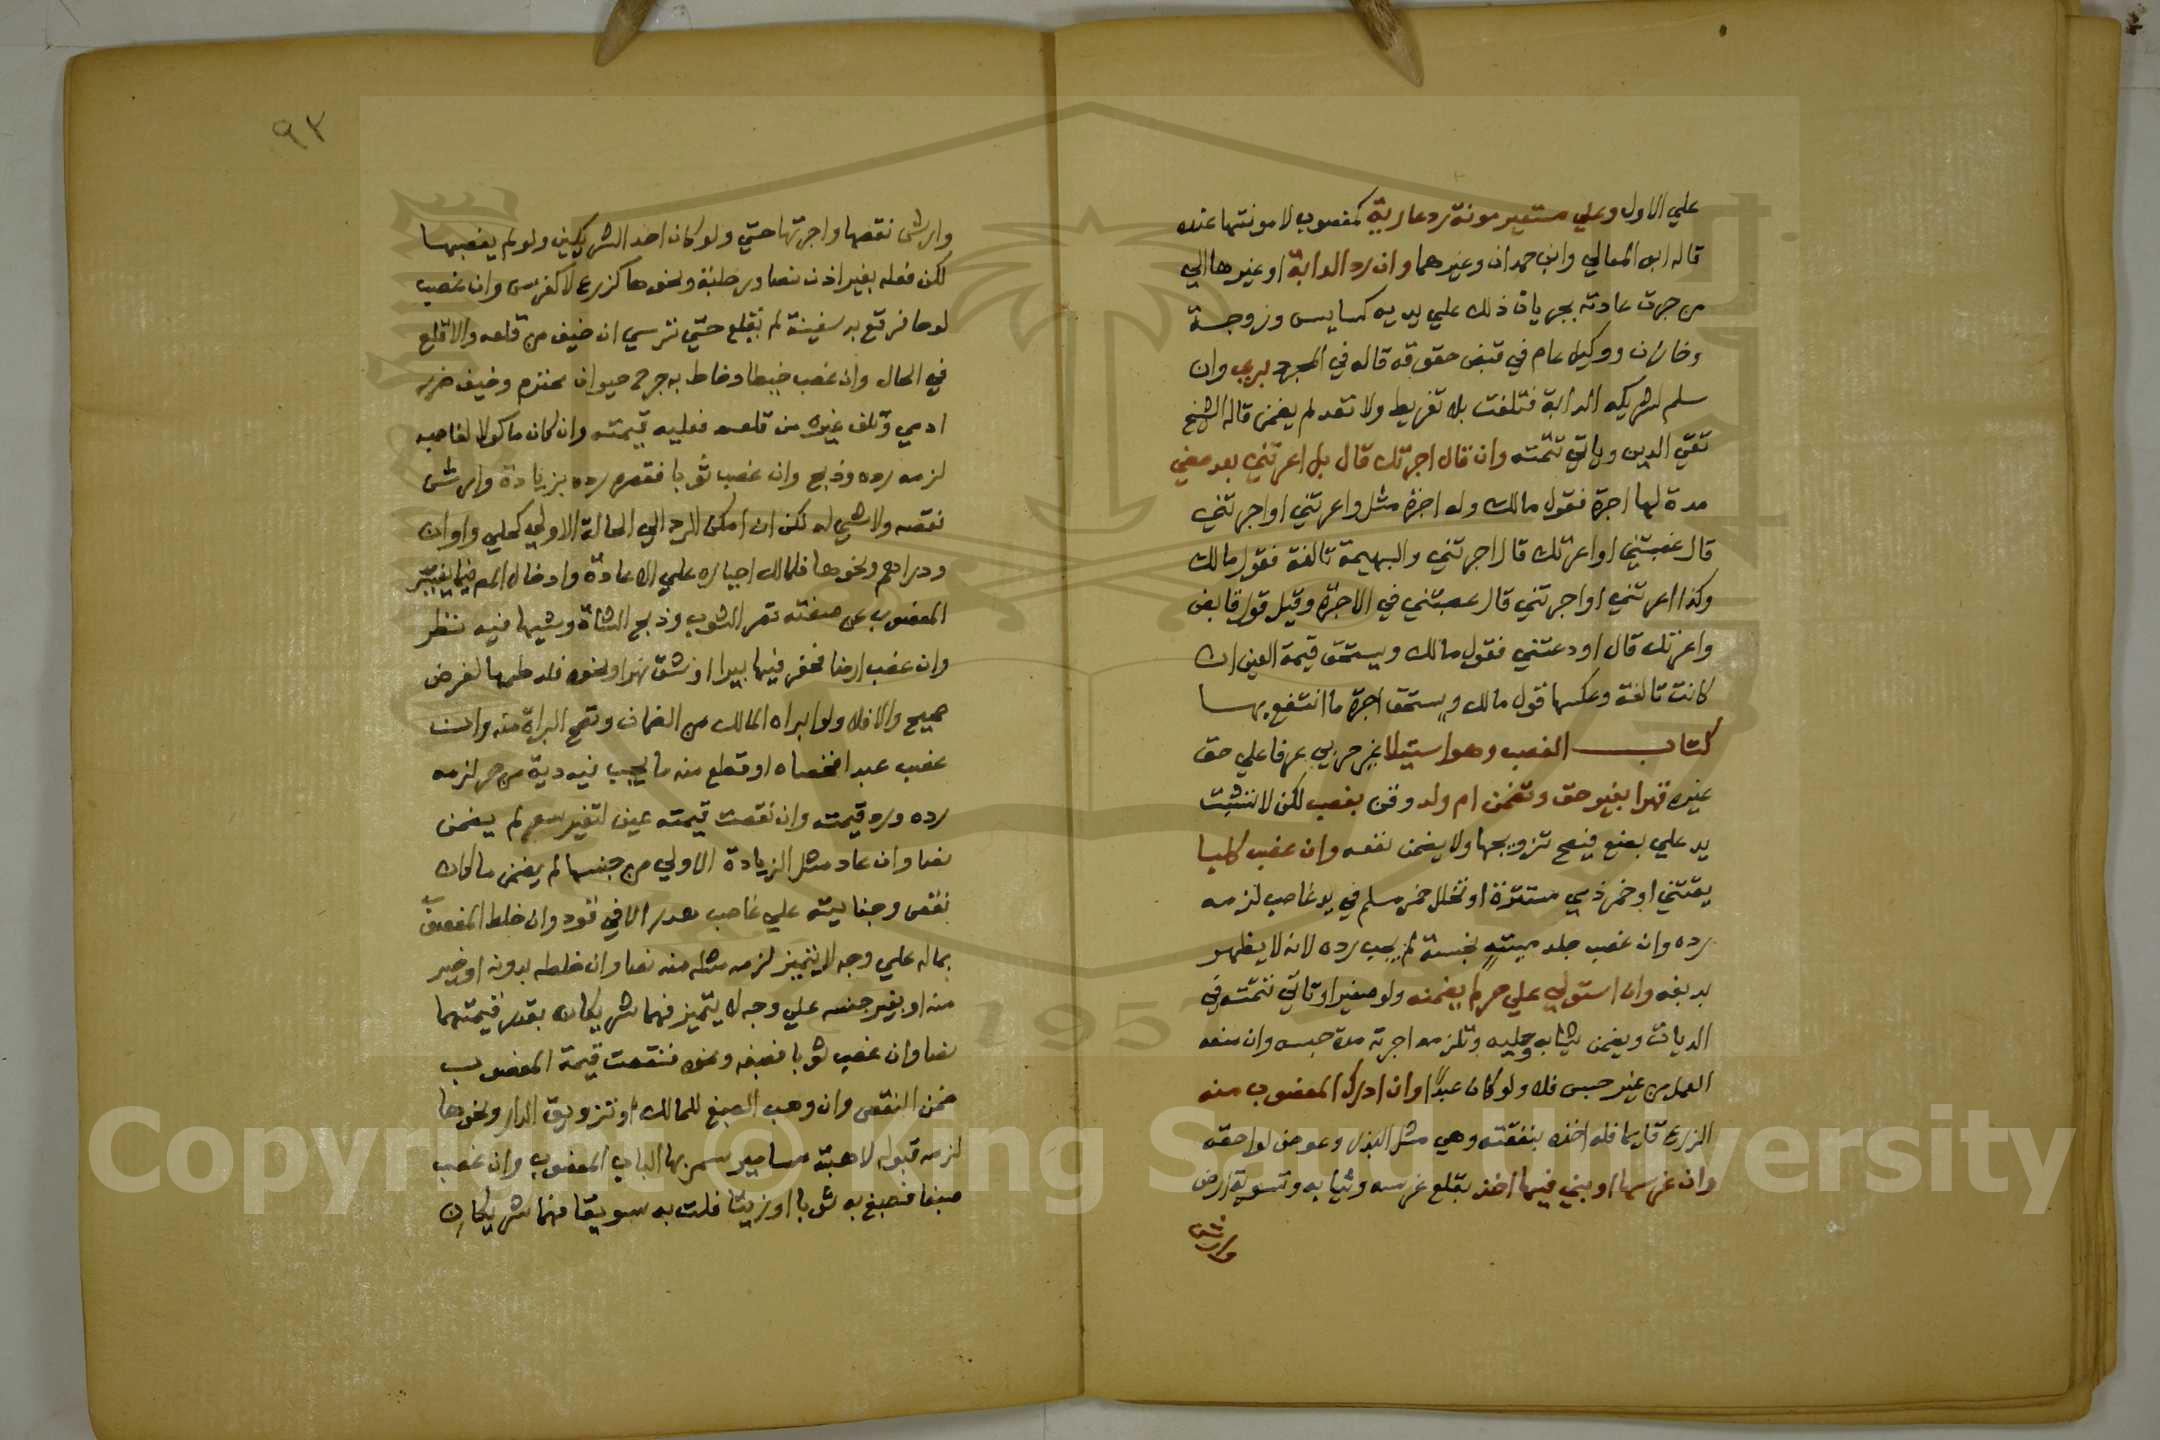 علي الاول وعلي مستعير مونة رد عارية كمغصوب لا مونتها عنده
قاله ابو المعالي وابن حمدان وغيرهما وان رد الدابة او غيرها الي
من جرت عادته بجريان ذلك علي يديه كسايس وزوجة
وخازن ووكيل عام في قبض حقوقه قاله في المجرد بري وان
سلم لشريكه الدابة فتلفت بلا تفريط ولا تعد لم يضمن قاله الشيخ
تقي الدين وياتي تتمته وان قال اجرتك قال بل اعرتني بعد مضي
مدة لها اجرة فقول مالك وله اجرة مثل واعرتني او اجرتني
قال غصبتني او اعرتك قال اجرتني والبهيمة تالفة فقول مالك
وكذا اعرتني او اجرتني قال غصبتني في الاجرة وقيل قول قابض
واعرتك قال اودعتني فقول مالك ويستحق قيمة العين ان
كانت تالفة وعكسها قول مالك ويستحق اجرة ما انتفع بها
كتاب الغصب وهو استيلا غير حربي عرفا علي حق
غيره قهرا بغير حق وتضمن ام ولد وقن بغصب لكن لا تثبت
يد علي بضع فيصح تزويجها ولا يضمن نفعه وان غصب كلبا
يقتني او خمر ذمي مستترة او تخلل خمر مسلم في يد غاصب لزمه
رده وان غصب جلد ميتة نجسة لم يجب رده لانه لا يطهر
بدبغه وان استولي علي حر لم يضمنه ولو صغيرا وتاتي تتمته في
الديات ويضمن ثيابه وحليه وتلزمه اجرته مدة حبسه وان منعه
العمل من غير حبس فلا ولو كان عبدا وان ادرك المغصوب منه
الزرع قايما فله اخذه بنفقته وهي مثل البذر وعوض لواحقه
وان غرسها او بني فيها اخذ بقلع غرسه وبنايه وتسوية ارض
وارش
٩٣
وارش نقصها واجرتها حتي ولو كان احد الشريكين ولو لم يغصبها
لكن فعله بغير اذن نصا ورطبة ونحوها كزرع لا كغرس وان غصب
لوحا فرقع به سفينة لم يقلع حتي ترسي ان خيف من قلعه والا قلع
في الحال وان غصب خيطا وخاط به جرح حيوان محترم وخيف ضرر
ادمي وتلف غيره من قلعه فعليه قيمته وان كان ماكولا لغاصبه
لزمه رده وذبح وان غصب ثوبا فقصره رده بزيادة وارش
نقصه ولا شي له لكن ان امكن الرد الي الحالة الاولي كحلي واوان
ودراهم ونحوها فللمالك اجباره علي الاعادة وادخال المص فيما يغير
المغصوب عن صفته قصر الثوب وذبح الشاة وشيها فيه نظر
وان غصب ارضا فحفر فيها بيرا او شق نهرا ونحوه فله طمها لغرض
صحيح والا فلا ولو ابراه المالك من الضمان وتصح البراة منه وان
غصب عبدا فخصاه او قطع منه ما يجب فيه دية من حر لزمه
رده ورد قيمته وان نقصت قيمته عين لتغير سعر لم يضمن
نصا وان عاد مثل الزيادة الاولي من جنسها لم يضمن ما كان
نقص وجنايته علي غاصب هدر الا في قود وان خلط المغصوب
بماله علي وجه لا يتميز لزمه مثله منه نصا وان خلطه بدونه او خير
منه او بغير جنسه علي وجه لا يتميز فهما شريكان بقدر قيمتهما
نصا وان غصب ثوبا فصبغه ونحوه فنقصت قيمة المغصوب
ضمن النقص وان وهب الصبغ للمالك او تزويق الدار ونحوها
لزمه قبوله لا هبة مسامير سمر بها الباب المغصوب وان غصب
صبغا فصبغ به ثوبا او زيتا فلت به سويقا فهما شريكان
Copyright © King Saud University
1957